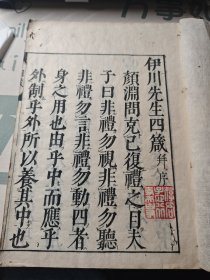 伊川先生四箴并序
顏淵問克己復禮之目夫
子曰非禮勿視非禮勿聽
非禮勿言非禮勿動四者
身之用也由乎中而應乎
外制乎外所以養其中也